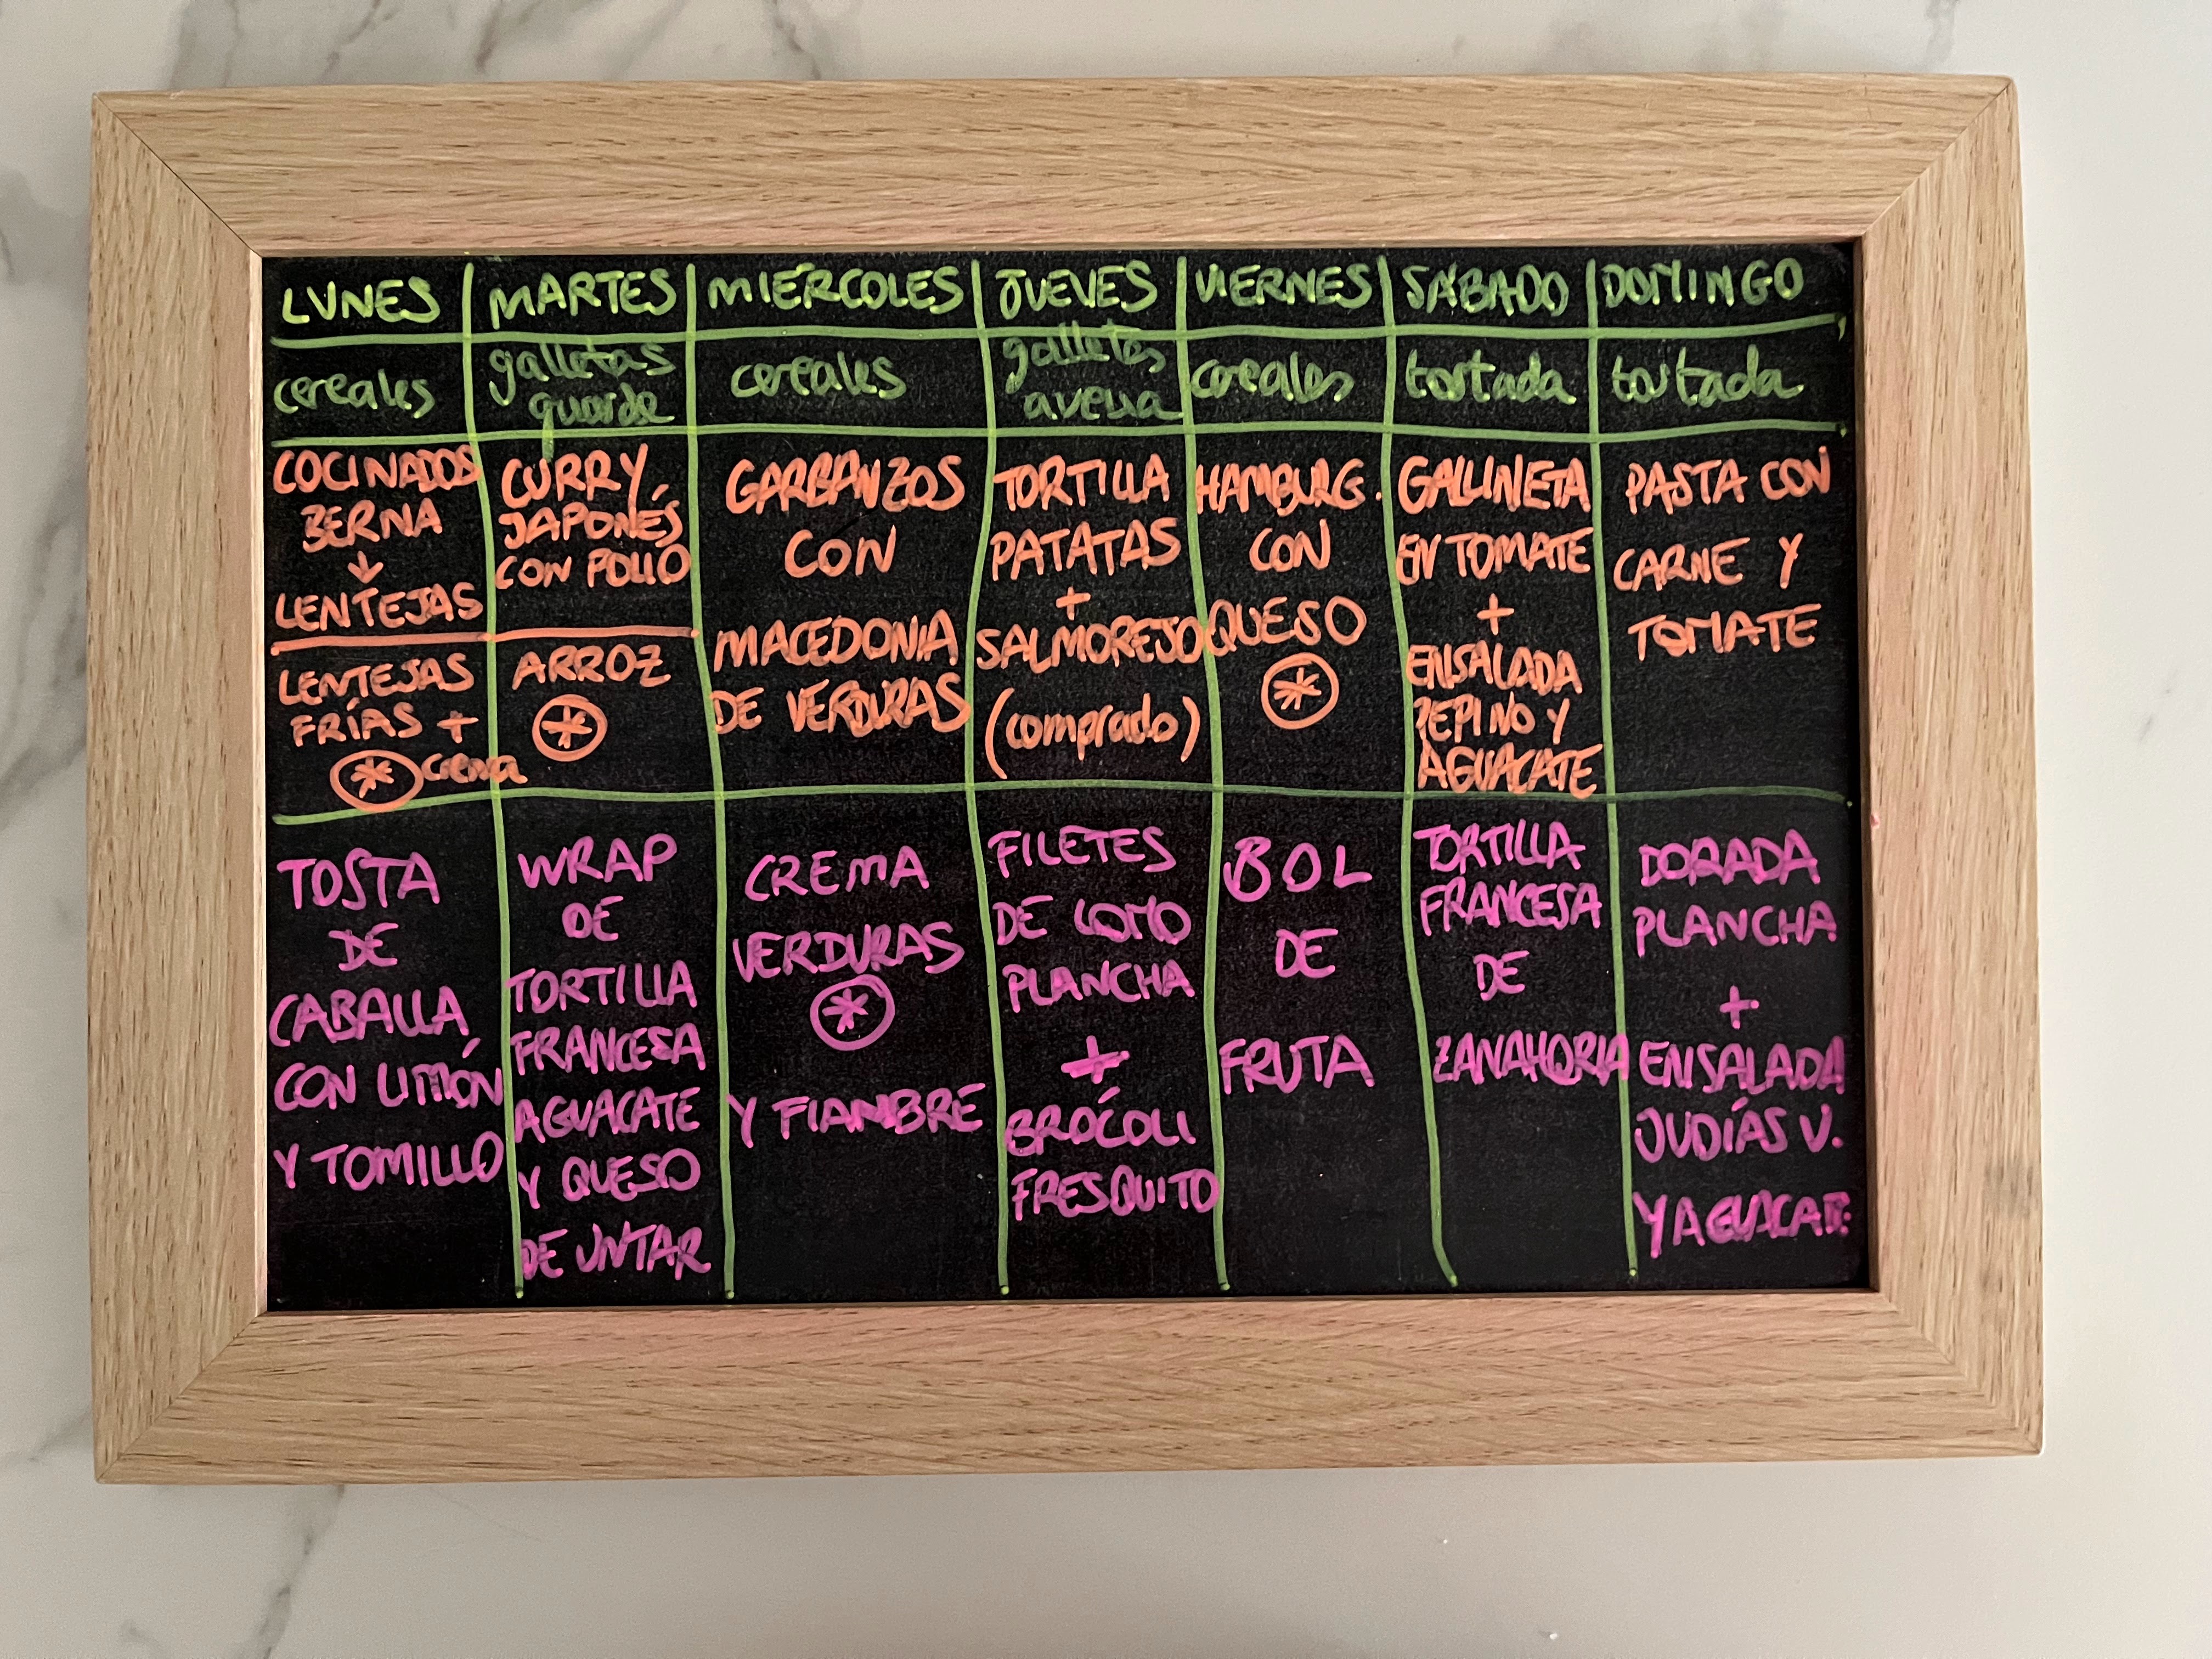 LUNES MARTES MIÉRCOLES JUEVES VIERNES SÁBADO DOMINGO
cereales
galletas
guarde
cereales
galletas
avena
cereales
tostada
tostada
COCINADOS
BERNA
↓
LENTEJAS
LENTEJAS
FRÍAS +
* crema
CURRY
JAPONÉS
CON POLLO
ARROZ
*
GARBANZOS
CON
MACEDONIA
DE VERDURAS
TORTILLA
PATATAS
+
SALMOREJO
(comprado)
HAMBURG.
CON
QUESO
*
GALLINETA
EN TOMATE
+
ENSALADA
PEPINO Y
AGUACATE
PASTA CON
CARNE Y
TOMATE
TOSTA
DE
CABALLA
CON LIMÓN
Y TOMILLO
WRAP
DE
TORTILLA
FRANCESA
AGUACATE
Y QUESO
DE UNTAR
CREMA
VERDURAS
*
Y FIAMBRE
FILETES
DE LOMO
PLANCHA
+
BRÓCOLI
FRESQUITO
BOL
DE
FRUTA
TORTILLA
FRANCESA
DE
ZANAHORIA
DORADA
PLANCHA
+
ENSALADA
JUDÍAS V.
Y AGUACATE